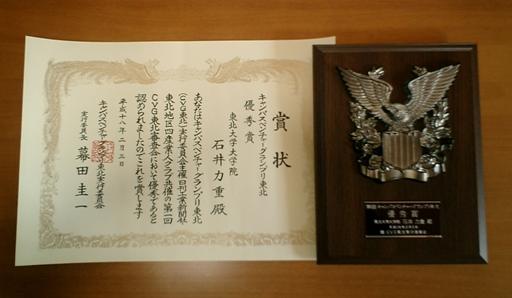 賞状
キャンパスベンチャーグランプリ東北
優秀賞
東北大学大学院
石井力重殿
あなたはキャンパスベンチャーグランプリ東北
(CVG東北)実行委員会主催日刊工業新聞社
東北地区四産業人クラブ共催の第一回
CVG東北審査会において優秀であると
認められましたのでこれを賞します
平成十八年二月三日
キャンパスベンチャーグランプリ東北実行委員会
実行委員長
幕田圭一
優秀賞